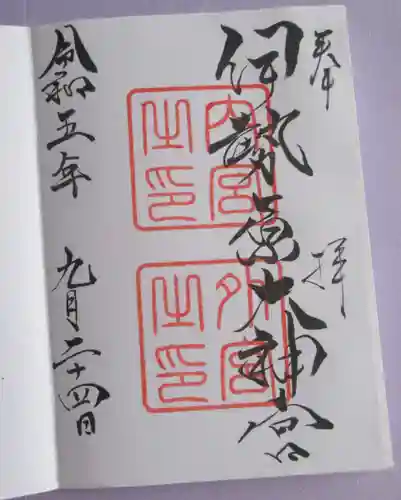 奉拝
伊勢原大神宮
内宮之印
外宮之印
令和五年 九月二十四日